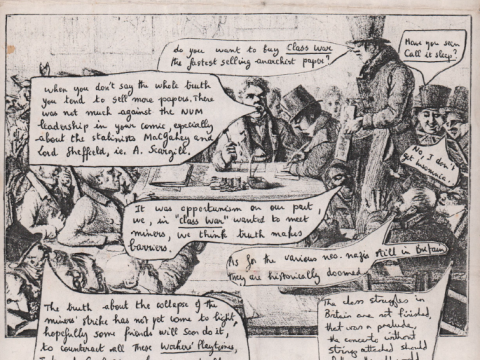 do you want to buy Class War
the fastest selling anarchist paper?
Have you seen
Call it sleep?
When you don't say the whole truth
you tend to sell more papers. There
was not much against the NUM
leadership in your comic, especially
about the stalinists McGahey and
Lord Sheffield, ie. A. Scargill
No, I don't
get insomnia.
It was opportunism on our part,
we, in "class War" wanted to meet
miners, we think truth makes
barriers.
As for the various neo-nazis still in Britain
they are historically doomed
The truth about the collapse of the
miners' strike has not yet come to light,
hopefully some friends will soon do it,
to counteract all these Workers' Playtime,
The class struggles in
Britain are not finished,
that was a prelude,
the concerto without
strings attached should